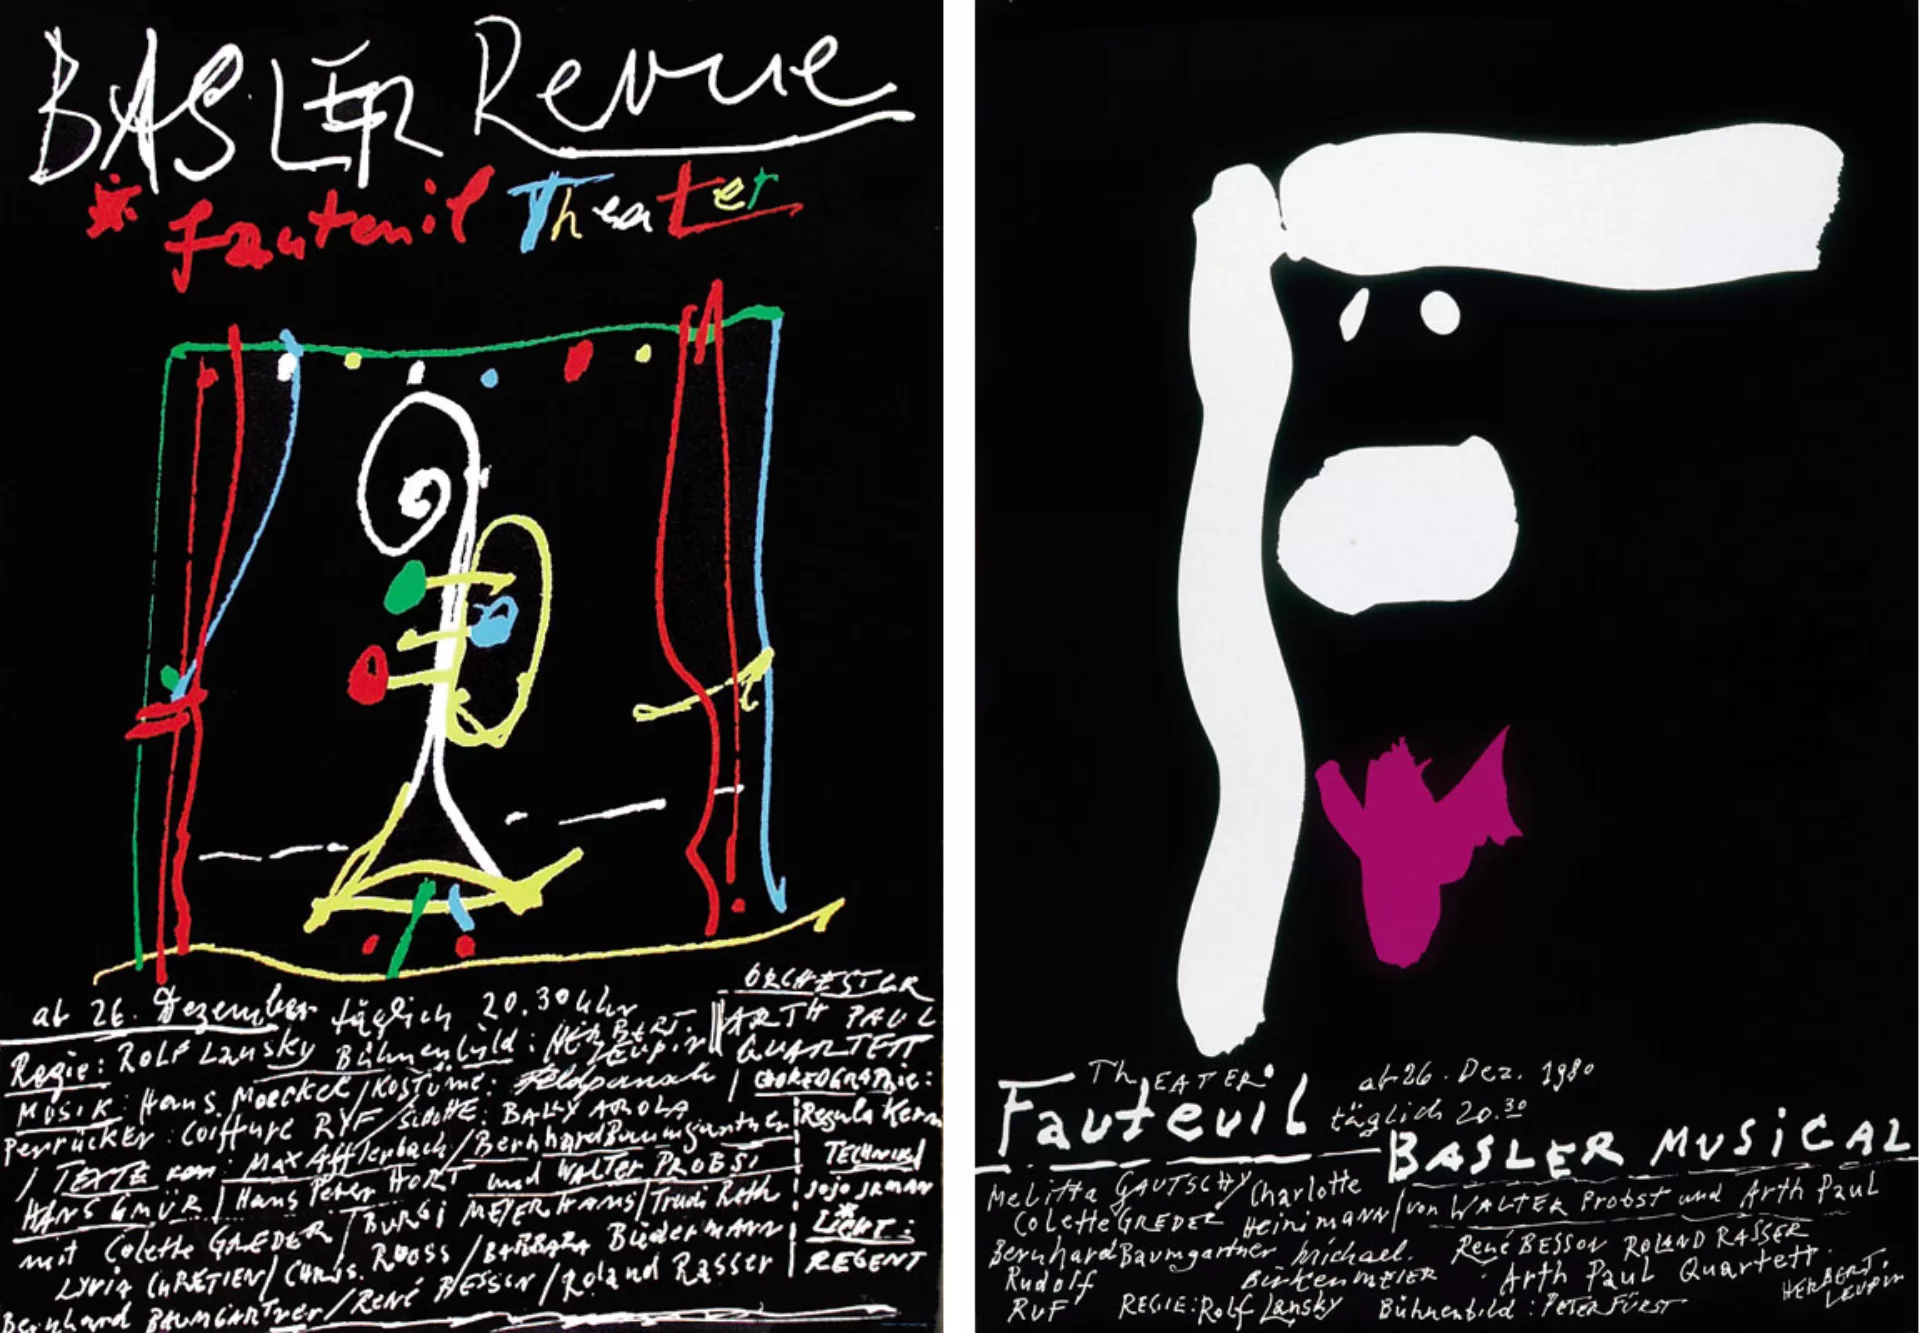 BASLER Revue
* Fauteuil Theater
ab 26. Dezember täglich 20.30 Uhr
Regie: ROLF Lansky Bühnenbild: HERBERT LEUPIN
MUSIK: Hans Moeckel / KOSTÜME:
Perrücken: Coiffure RYF /
/ TEXTE von: MAX Afflerbach / Bernhard Baumgartner
HANS GMÜR / Hans Peter HORT und WALTER PROBST
mit Colette GREDER / BURGI MEIERHANS / Trudi Roth
LYRIA CHRÉTIEN / CHRIS. ROOSS / BARBARA BüderMANN
Bernhard BAUMGARTNER / RENÉ BESSON / Roland Rasser
ORCHESTER
ARTH PAUL
QUARTETT
CHOREOGRAPHIE:
Regula Kern
TECHNIK
JoJo
LICHT:
REGENT
THEATER
Fauteuil
ab 26. Dez. 1980
täglich 20.30
BASLER MUSICAL
von WALTER Probst und Arth Paul
Melitta GAUTSCHY Charlotte
Colette GREDER Heinimann
Bernhard Baumgartner Michael
Rudolf BirkenMEIER
RUF
René BESSON ROLAND RASSER
Arth Paul Quartett
REGIE: Rolf Lansky Bühnenbild: PETER FÜRST
HERBERT
LEUPIN